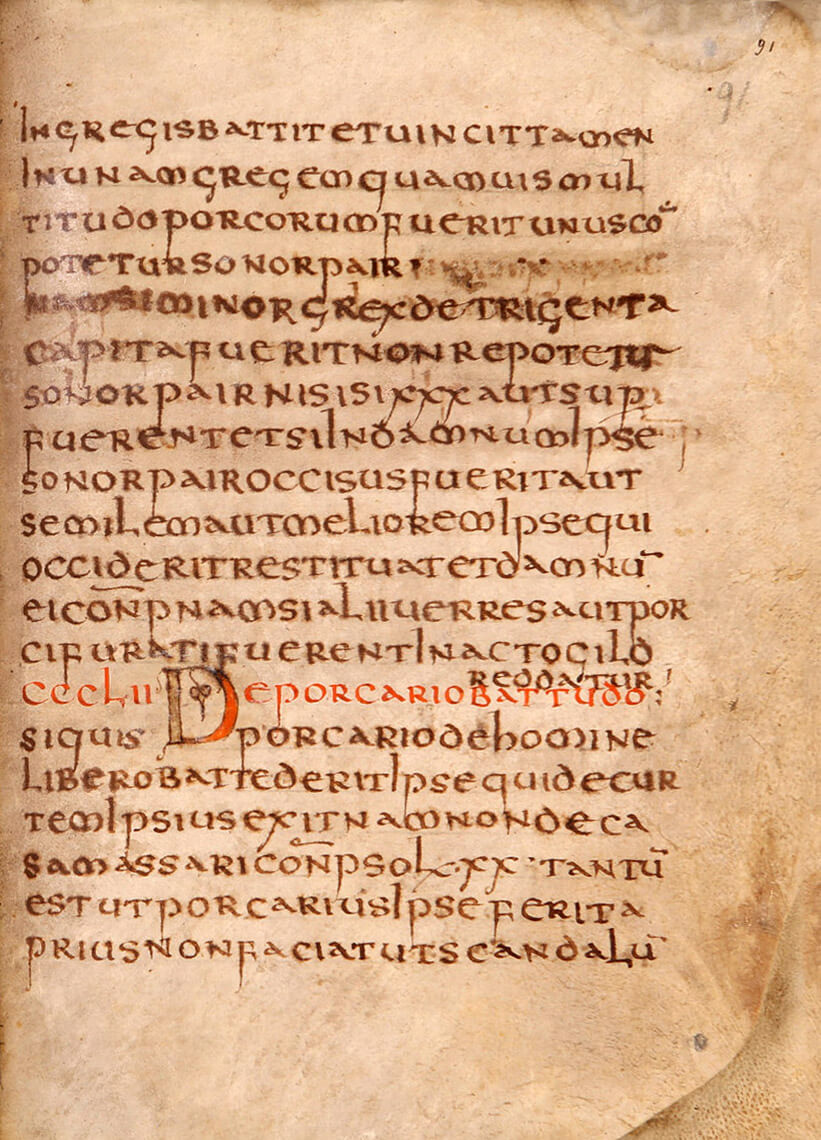 91
91
INGREGISBATTITETUINCITTAMEN
INUNAMGREGEMQUAMUISMUL
TITUDOPORCORUMFUERITUNUSCO̅
POTETURSONORPAIR
NAMSIMINORGREXDETRIGENTA
CAPITAFUERITNONREPOTETUR
SONORPAIRNISISIXXXAUTSUPR
FUERENTETSIINDAMNUMIPSE
SONORPAIROCCISUSFUERITAUT
SEMILEMAUTMELIOREMIPSEQUI
OCCIDERITRESTITUATETDAMNU̅
EICON̅PNAMSIALIIUERRESAUTPOR
CIFURATIFUERENTINACTOGILD
REDDATUR
CCCLII DEPORCARIOBATTUDO:
SIQUIS PORCARIODEHOMINE
LIBEROBATTEDERITIPSEQUIDECUR
TEMIPSIUSEXITNAMNONDECA
SAMASSARICON̅PSOLXX·TANTU̅
ESTUTPORCARIUSIPSEFERITA
PRIUSNONFACIATUTSCANDALU̅